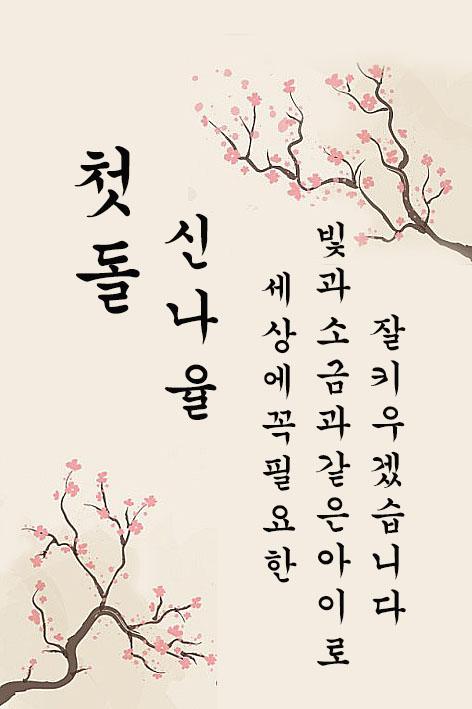 첫돌
신나율
세상에꼭필요한
빛과소금과같은아이로
잘키우겠습니다